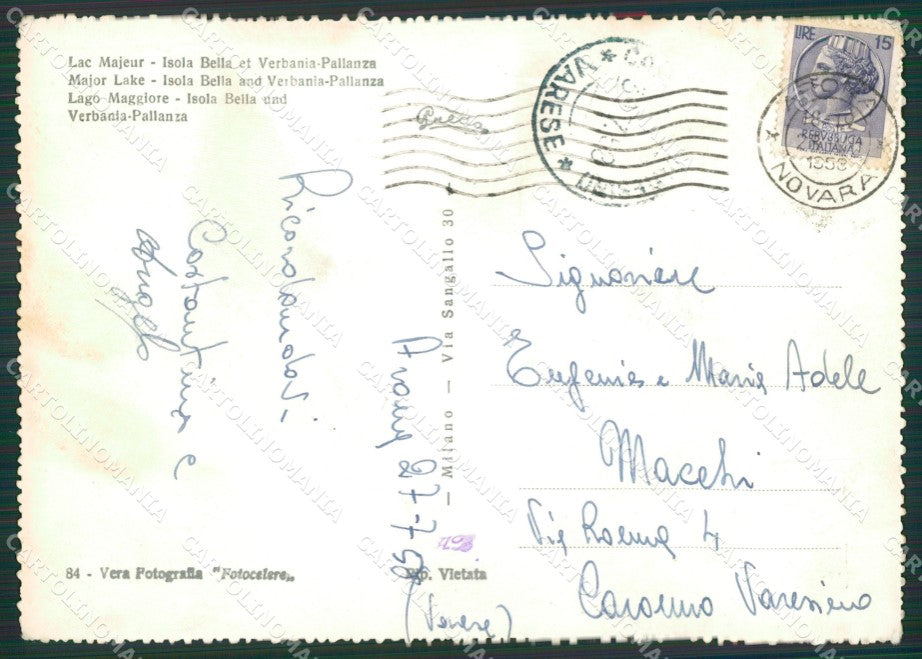 Lac Majeur - Isola Bella et Verbania-Pallanza
Major Lake - Isola Bella and Verbania-Pallanza
Lago Maggiore - Isola Bella und
Verbania-Pallanza
LIRE 15
ITALIANA
VARESE
1958
NOVARA
Ricordandovi
Costantina e
Angelo
Arona 27-7-58
— Milano — Via Sangallo 30
Signorine
Eugenia e Maria Adele
Macchi
Via Roma 4
Caronno Varesino
(Varese)
84 - Vera Fotografia "Fotocelere"
Rip. Vietata
CARTOLINOMANIA